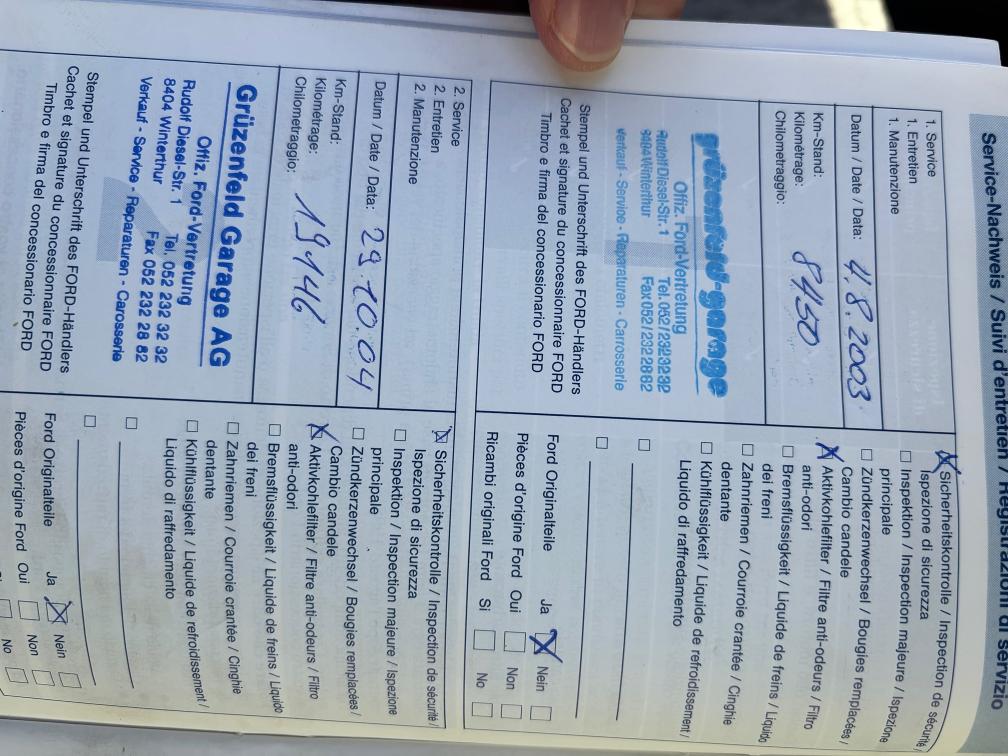 Service-Nachweis / Suivi d'entretien / Registrazioni di servizio
1. Service
1. Entretien
1. Manutenzione
Datum / Date / Data: 4.8.2003
Km-Stand:
Kilométrage: 8450
Chilometraggio:
grüzenfeld-garage
Offiz. Ford-Vertretung
Rudolf Diesel-Str. 1 Tel. 052/232 32 32
8404 Winterthur Fax 052/232 28 82
Verkauf - Service - Reparaturen - Carrosserie
Stempel und Unterschrift des FORD-Händlers
Cachet et signature du concessionnaire FORD
Timbro e firma del concessionario FORD
Sicherheitskontrolle / Inspection de sécurité /
Ispezione di sicurezza
Inspektion / Inspection majeure / Ispezione
principale
Zündkerzenwechsel / Bougies remplacées /
Cambio candele
Aktivkohlefilter / Filtre anti-odeurs / Filtro
anti-odori
Bremsflüssigkeit / Liquide de freins / Liquido
dei freni
Zahnriemen / Courroie crantée / Cinghie
dentante
Kühlflüssigkeit / Liquide de refroidissement /
Liquido di raffredamento
Ford Originalteile Ja Nein
Pièces d'origine Ford Oui Non
Ricambi originali Ford Sì No
2. Service
2. Entretien
2. Manutenzione
Datum / Date / Data: 29.10.04
Km-Stand:
Kilométrage: 19146
Chilometraggio:
Grüzenfeld Garage AG
Offiz. Ford-Vertretung
Rudolf Diesel-Str. 1 Tel. 052 232 32 32
8404 Winterthur Fax 052 232 28 82
Verkauf - Service - Reparaturen - Carosserie
Stempel und Unterschrift des FORD-Händlers
Cachet et signature du concessionnaire FORD
Timbro e firma del concessionario FORD
Sicherheitskontrolle / Inspection de sécurité /
Ispezione di sicurezza
Inspektion / Inspection majeure / Ispezione
principale
Zündkerzenwechsel / Bougies remplacées /
Cambio candele
Aktivkohlefilter / Filtre anti-odeurs / Filtro
anti-odori
Bremsflüssigkeit / Liquide de freins / Liquido
dei freni
Zahnriemen / Courroie crantée / Cinghie
dentante
Kühlflüssigkeit / Liquide de refroidissement /
Liquido di raffredamento
Ford Originalteile Ja Nein
Pièces d'origine Ford Oui Non
No